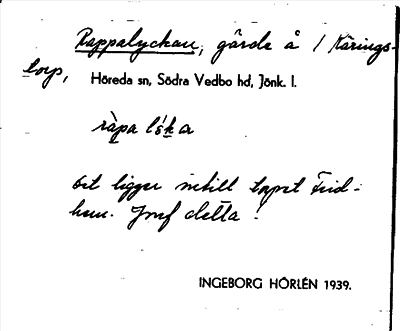 Rappalyckan, gärde å / Kärings-
torp, Höreda sn, Södra Vedbo hd, Jönk. l.
ràpa
det ligger intill torpet Frid-
hem. Jmf detta!
INGEBORG HÖRLÉN 1939.